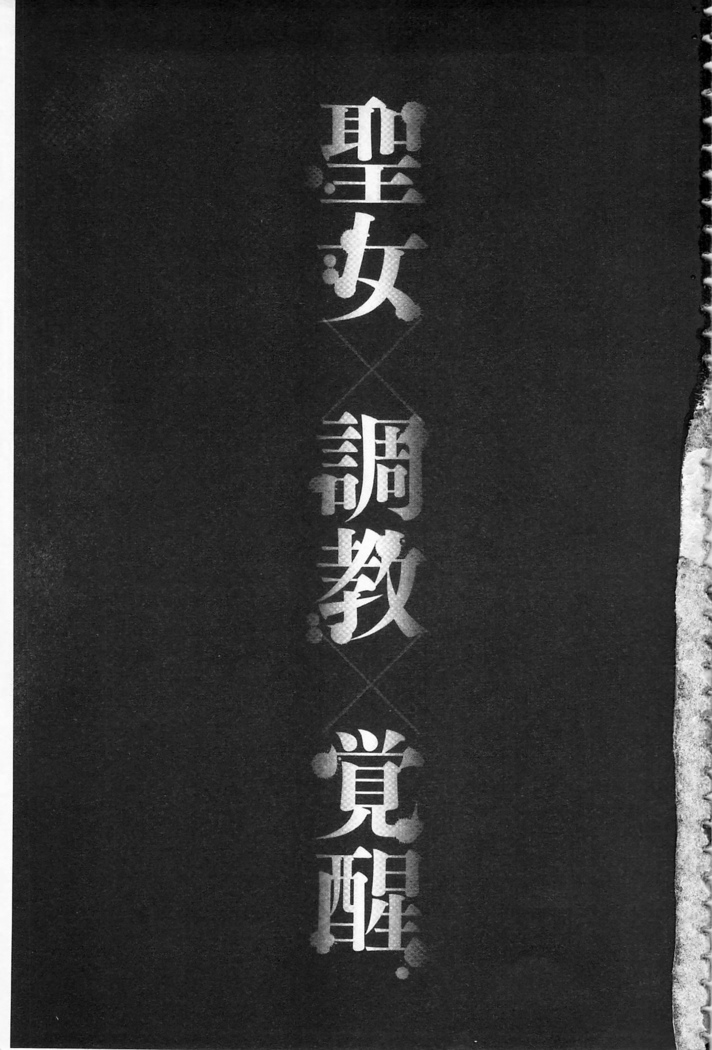 聖女×調教×覚醒